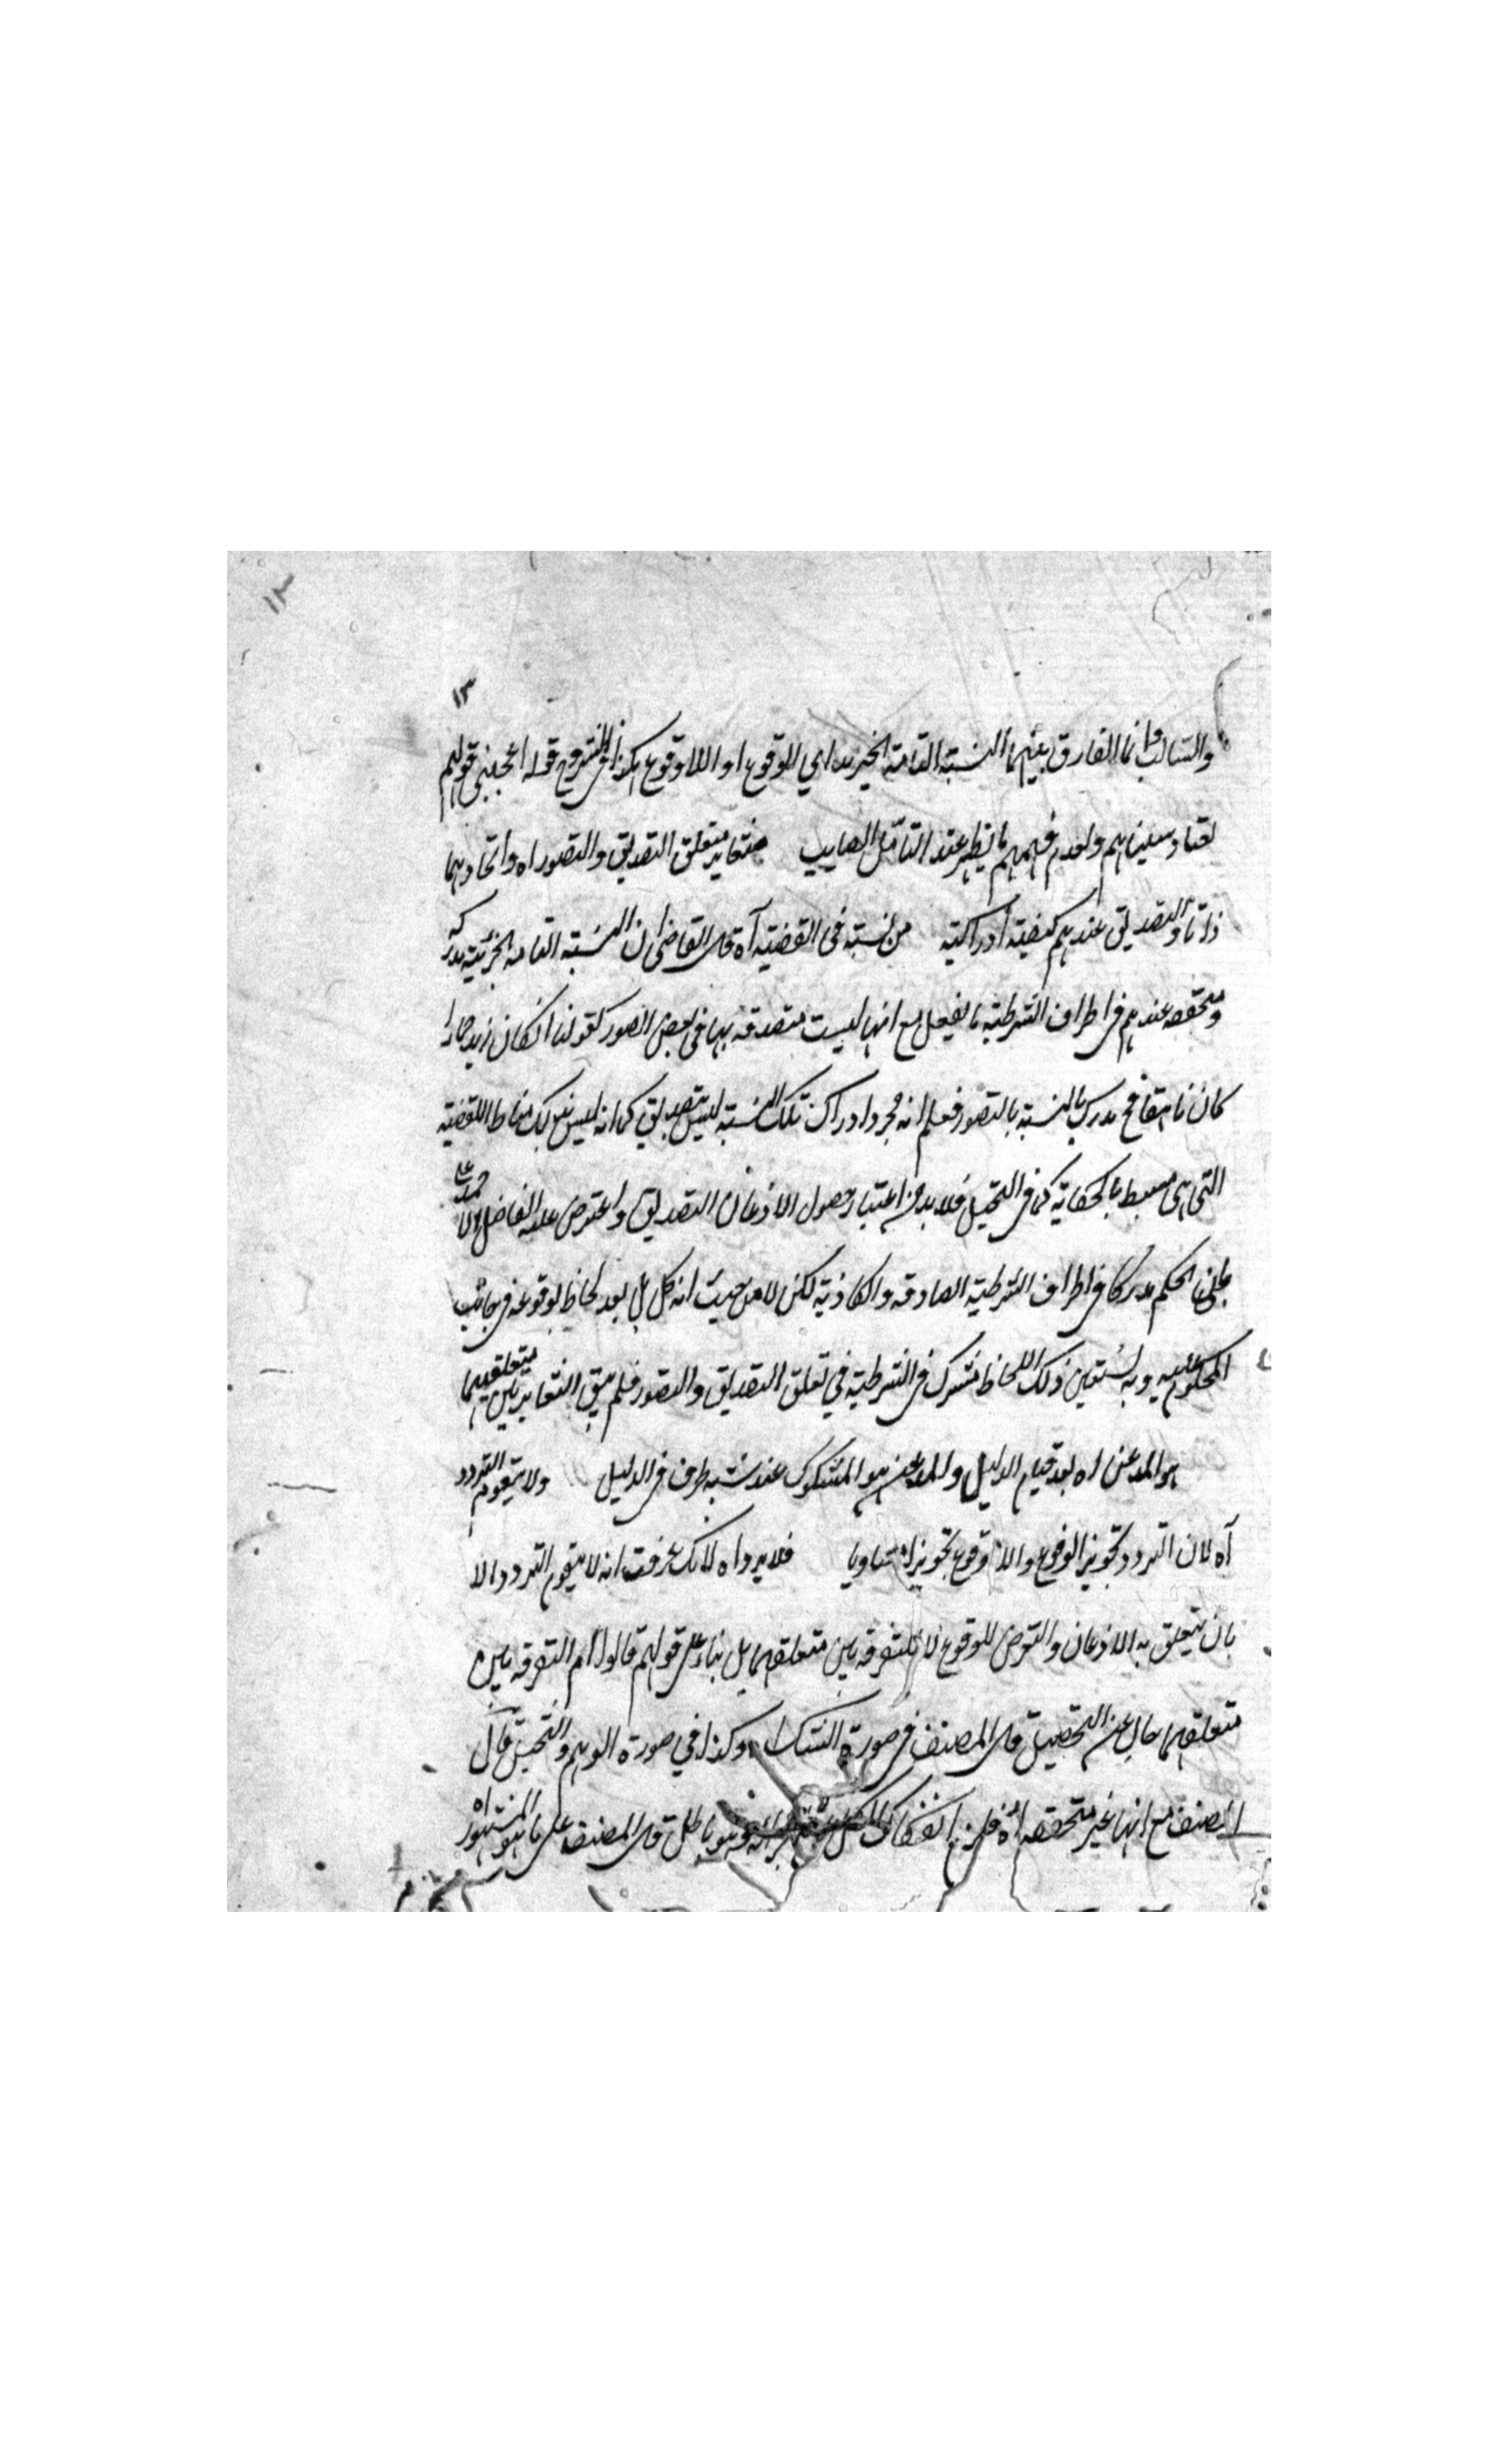 ١٣
١٣
والسالبة وانما الفارق بينهما النسبة التامة الخبرية اي الوقوع او اللاوقوع هكذا في الشروح قوله اعجبني قولهم
لعناد معينا بهم ولعدم فهمهم ما يظهر عند التأمل الصايب فتغاير متعلق التصديق والتصور اه واتحادهما
ذاتا والتصديق عندهم كيفية ادراكية من نسبة في القضية آه قال القاضي ان النسبة التامة الخبرية مدركة
ومتحققه عندهم في اطراف الشرطية بالفعل مع انها ليست متصدقه بها في بعض الصور كقولنا ان كان زيد حمارا
كان ناهقا فح يدرك النسبة بالتصور فعلم انه مجرد ادراك تلك النسبة ليس بتصديق كما انه ليس بذلك مناط القضية
التي هي بالحكاية كما في التخييل فلا بد من اعتبار حصول الاذعان التصديق واعترض عليه الفاضل محمد علي
بان الحكم مدركا في اطراف الشرطية الصادقه والكاذبة لكن لا من حيث انه كل بل بعد لحاظ لوقوعه في جانب
المحكوم عليه وبه ذلك اللحاظ في الشرطية في تعلق التصديق والتصور فلم يبق التغاير بين متعلقيهما
هو المذعن اه بعد قيام الدليل والمذعن هو المشكوك عند طرف في الدليل ولا يتقوم التردد
آه لان التردد تجويز الوقوع واللاوقوع تجويزا متساويا فلا يرد اه لانك عرفت انه لا يتقوم التردد الا
بان يتعلق به الاذعان والتعرض للوقوع لا للتفرقه بين متعلقهما بل بناء على قولهم قالوا ام التفرقه بين
متعلقهما خال عن التحصيل قال المصنف في صورة الشك اه وكذا في صورة الوهم والتخييل قال
المصنف مع انها غير متحققه اه فلزم انفكاك الكل وهو باطل قال المصنف على ما هو المشهور اه